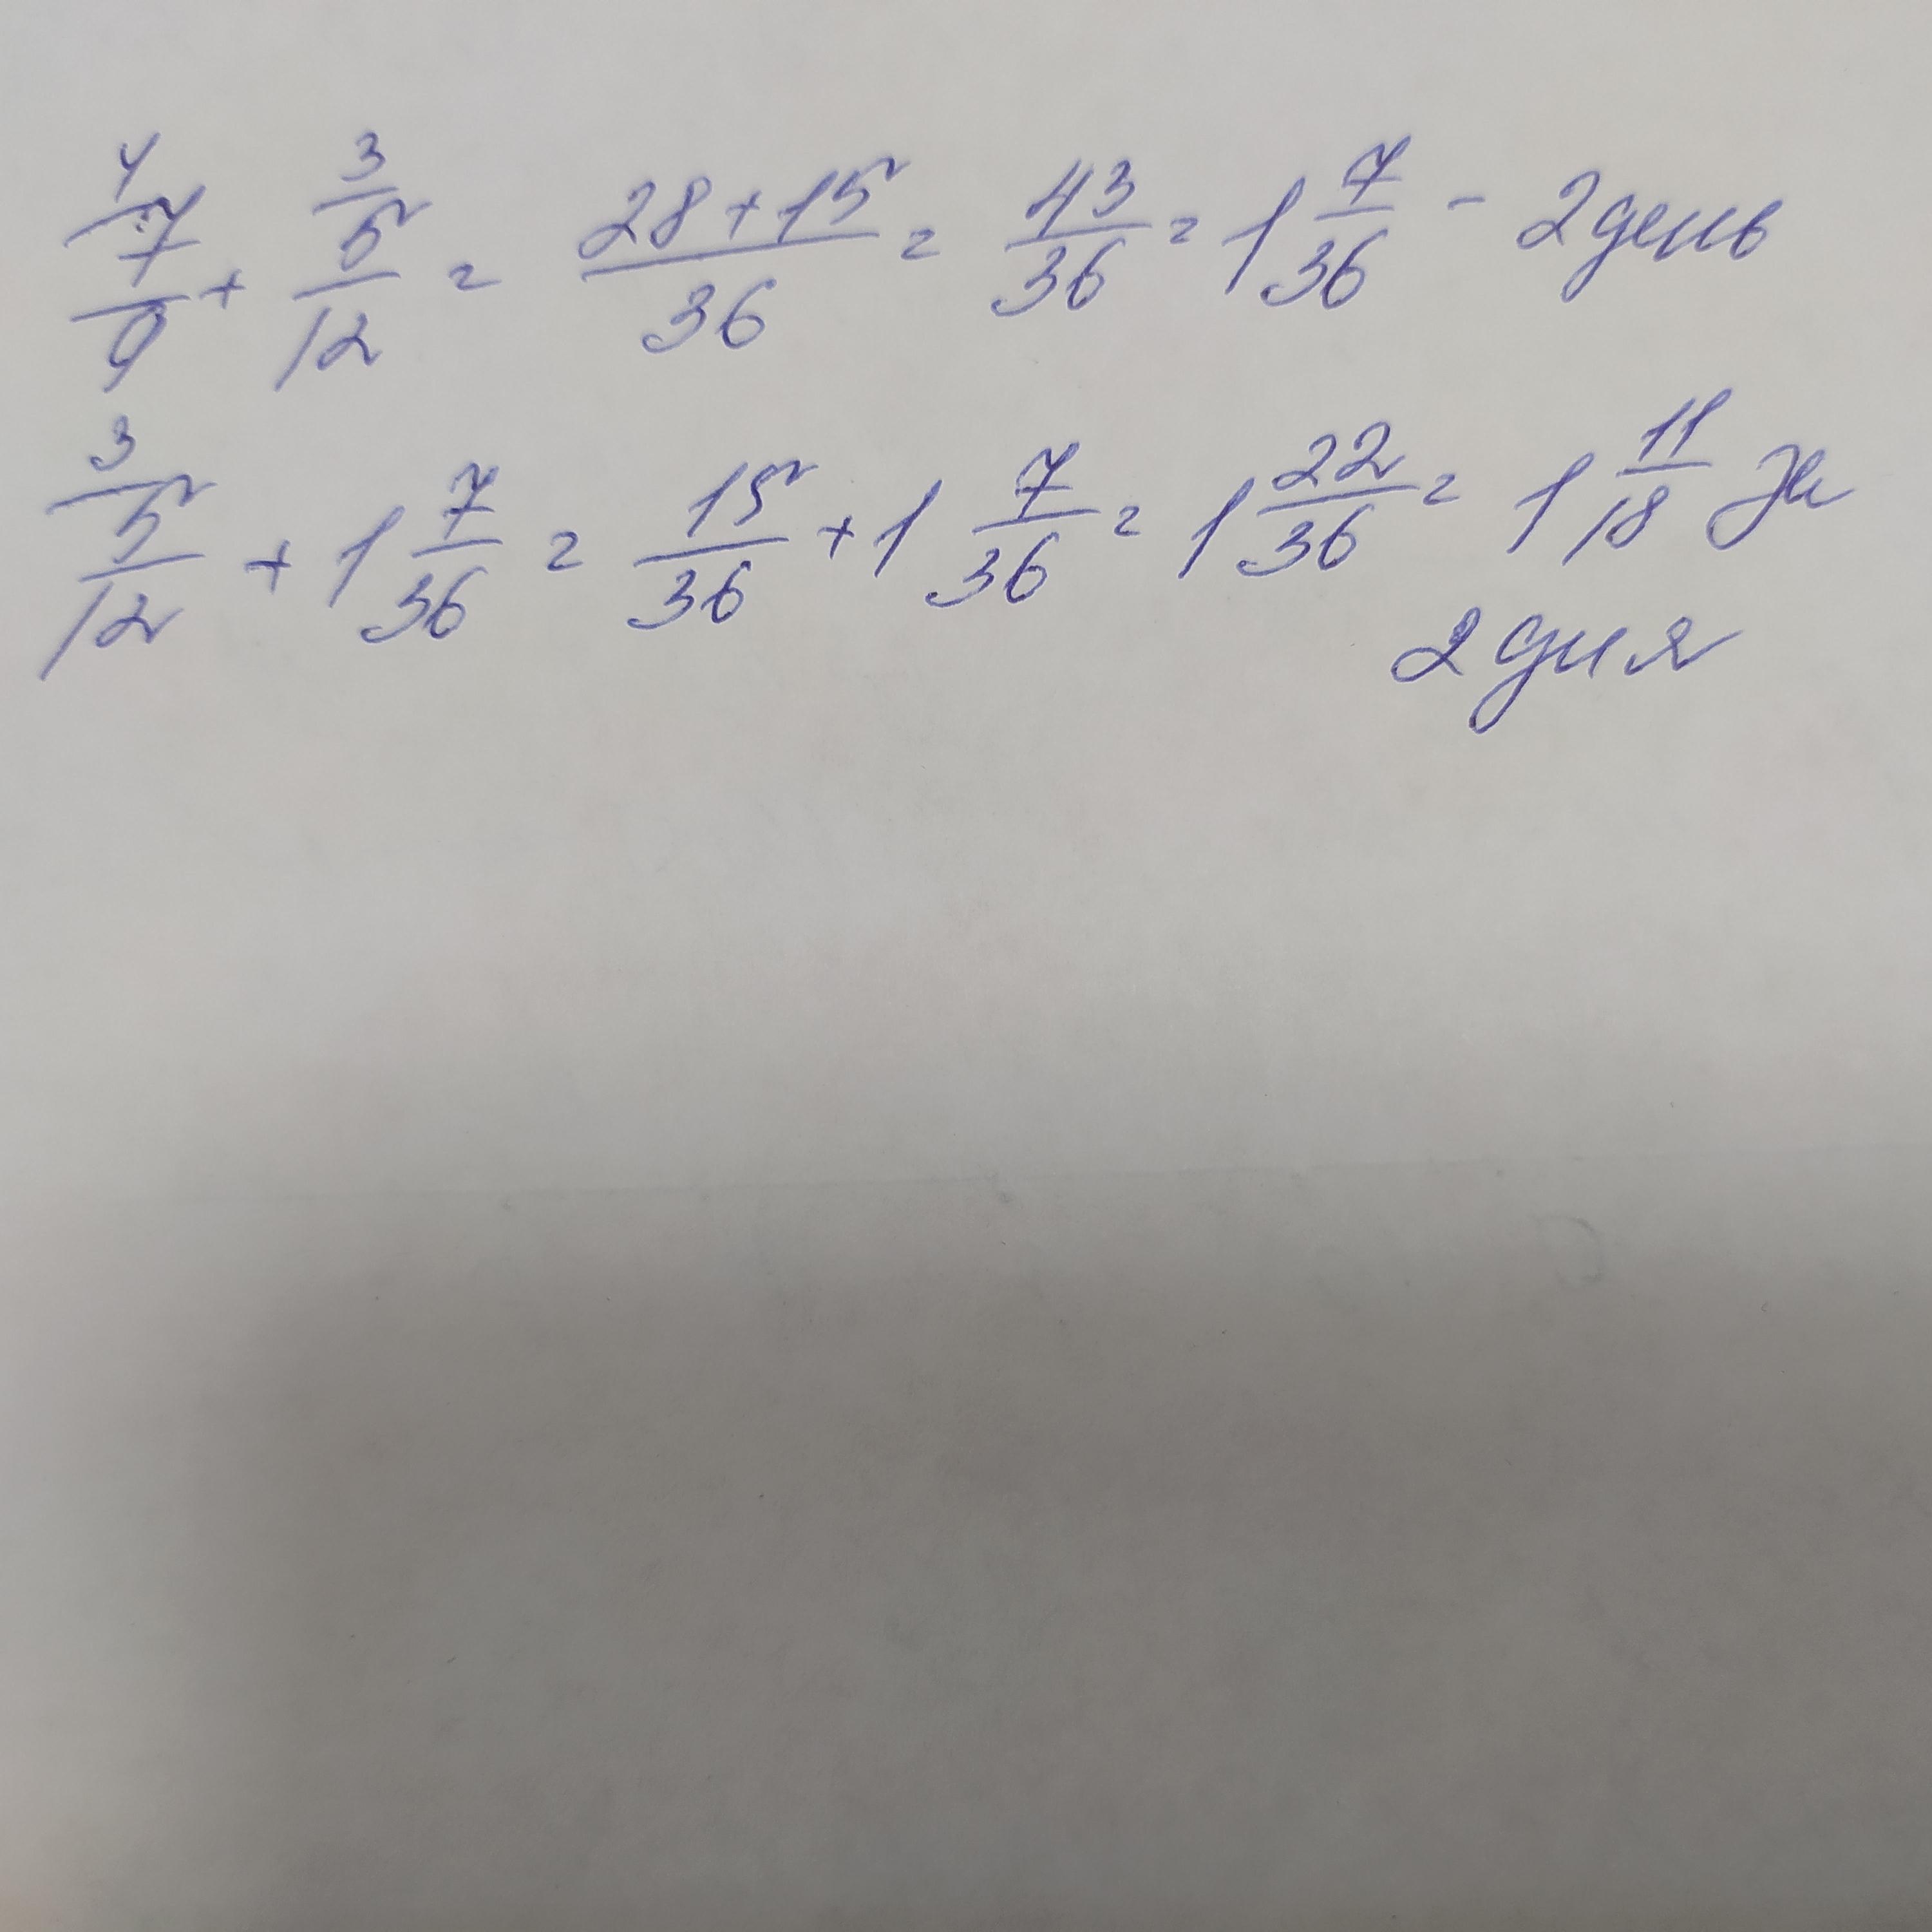 4/7/9 + 3/5/12 = 28+15/36 = 43/36 = 1 7/36 - 2 день
3/5/12 + 1 7/36 = 15/36 + 1 7/36 = 1 22/36 = 1 11/18 за
2 дня